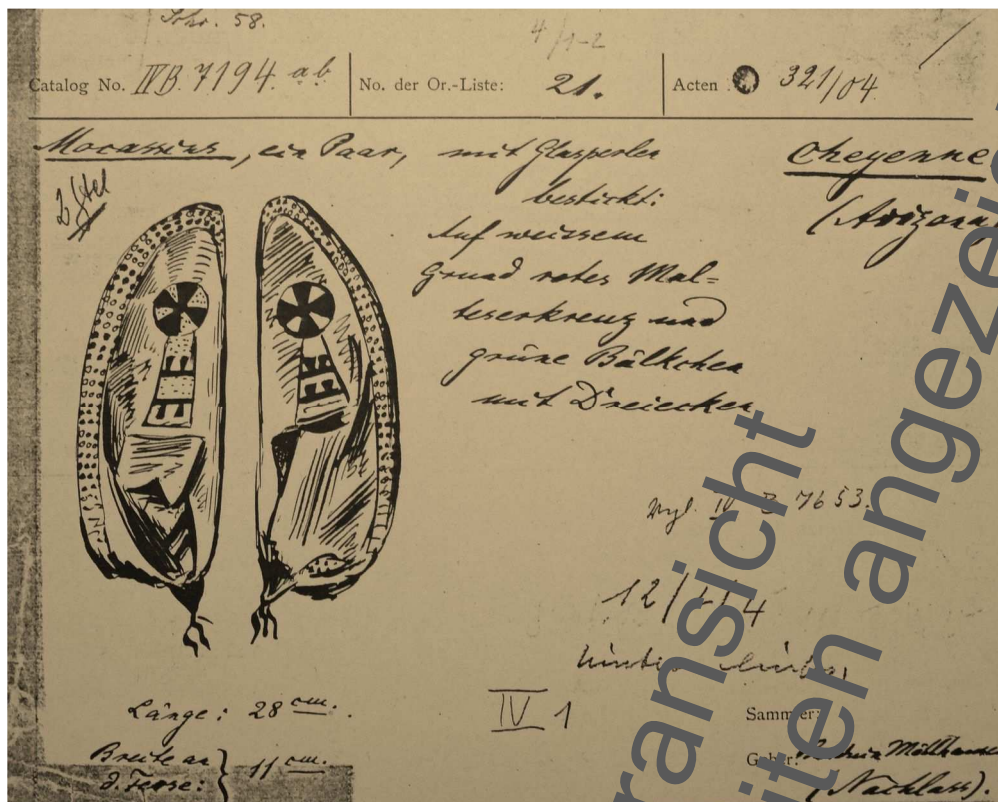 58.
4/1-2
Catalog No. IVB. 7194. a.b.
No. der Or.-Liste: 21.
Acten 321/04
Mocassins, ein Paar, mit Glasperlen
bestickt:
Auf weissem
Grund rotes Mal=
teserkreuz und
grüne Bälkchen
mit Dreiecken
Cheyenne
(Arizona
Vgl. IV B 7653.
12/ 4
hinten
IV 1
Länge: 28 cm.
Breite an
d. Ferse: } 11 cm.
Sammler:
Geber: Möllhausen
(Nachlass).
ransicht
iten angezei